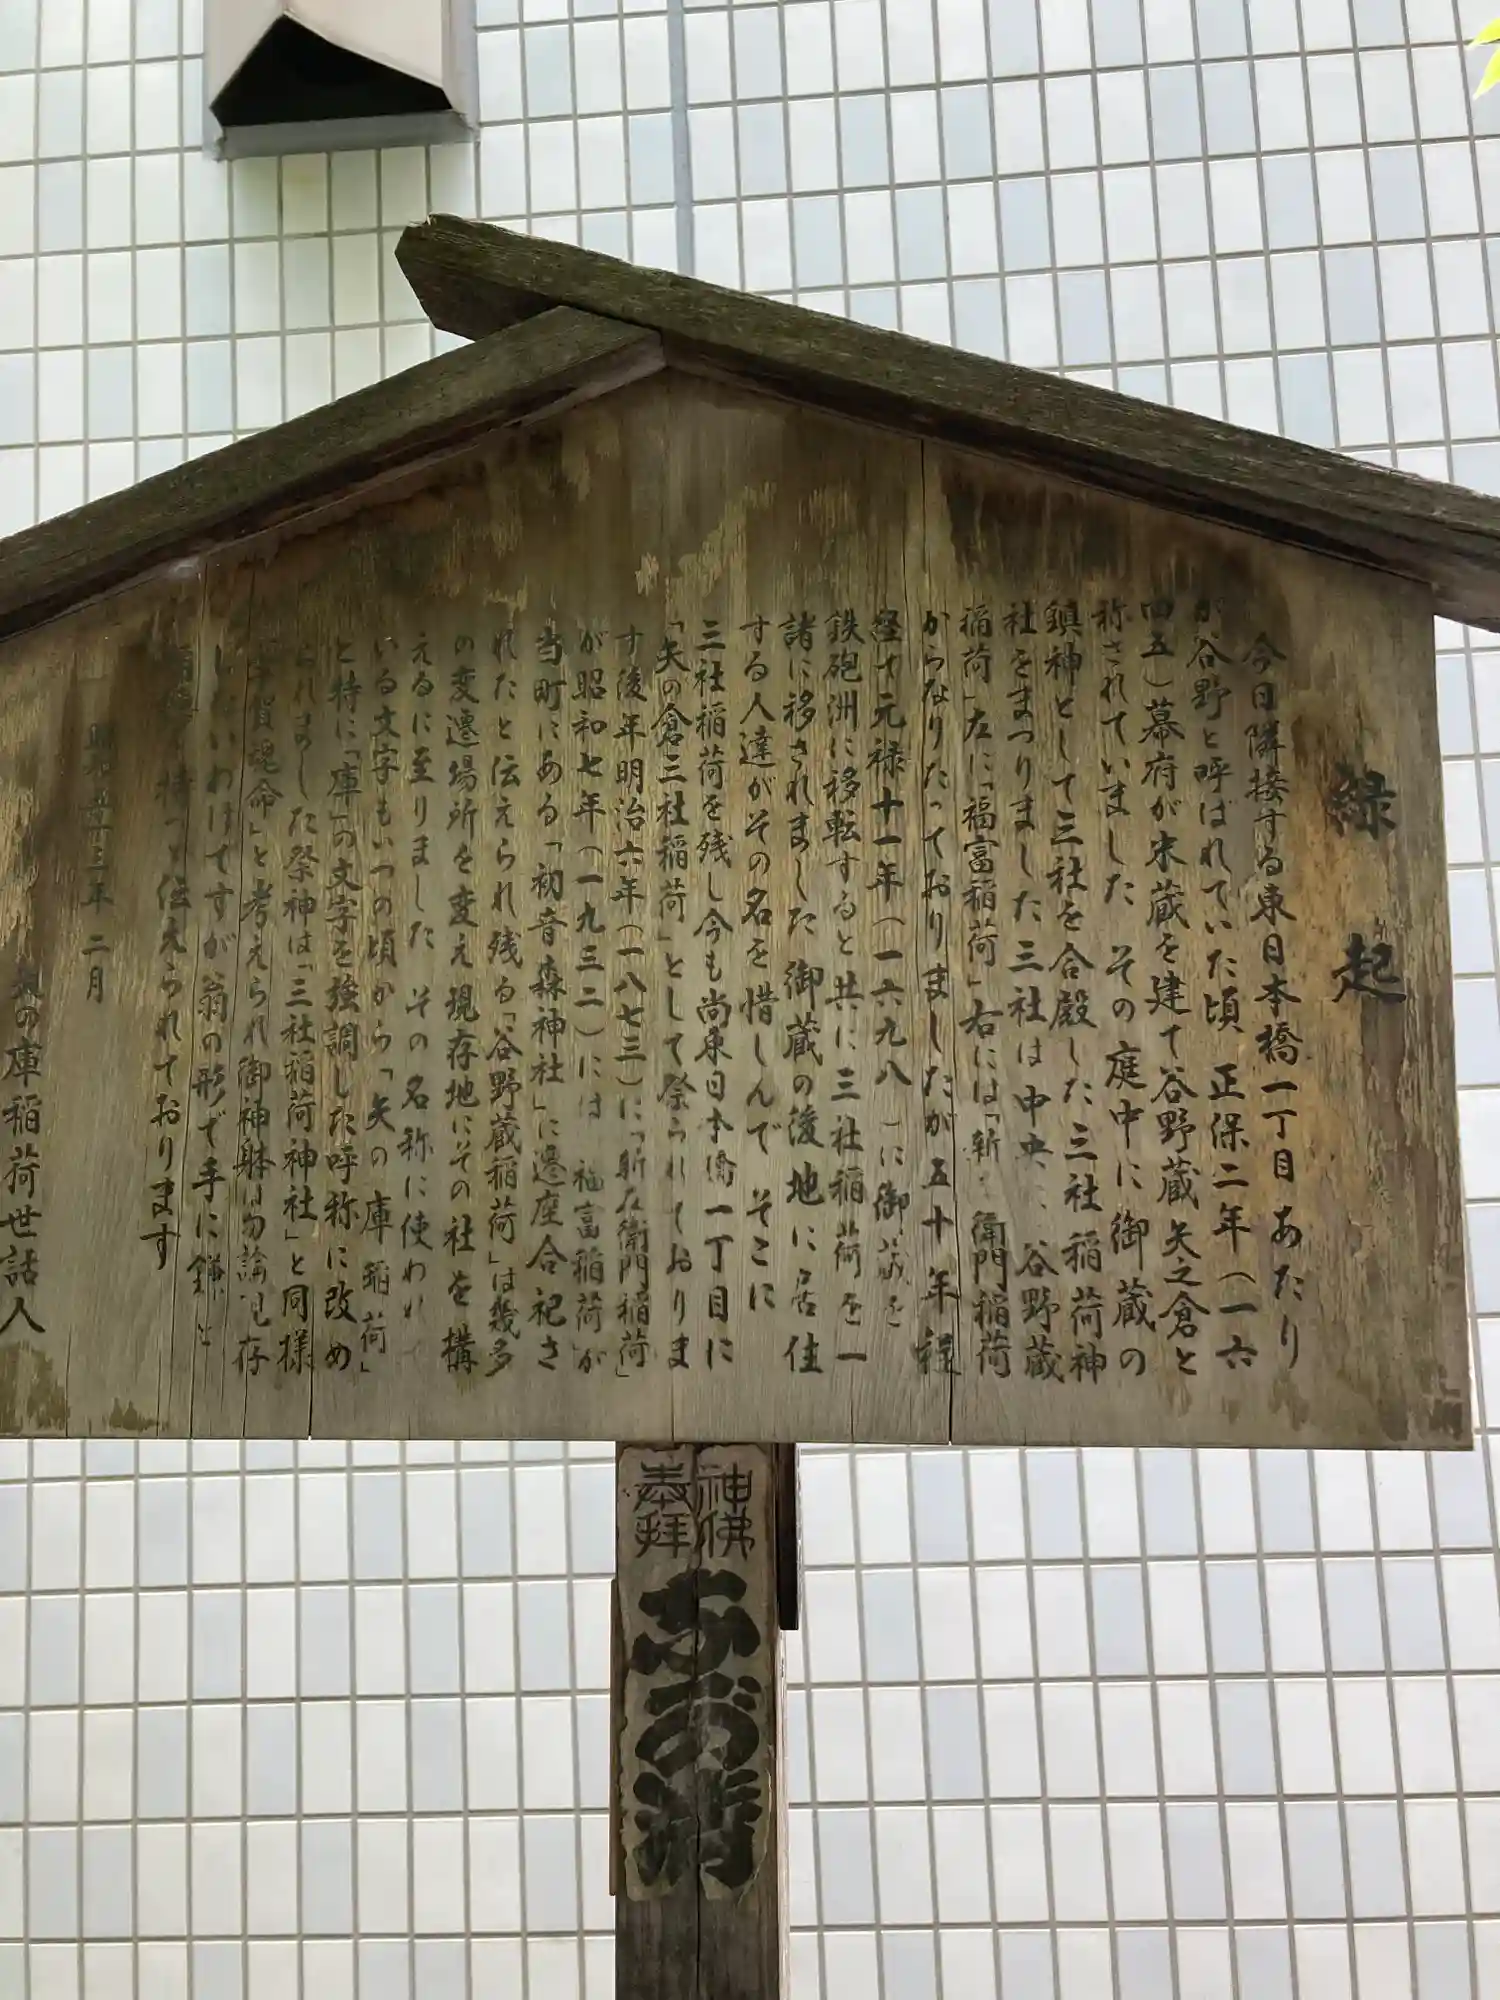 縁起
今日隣接する東日本橋一丁目あたり
が谷野と呼ばれていた頃 正保二年(一六
四五)幕府が米蔵を建て谷野蔵矢之倉と
称されていました その庭中に御蔵の
鎮神として三社を合殿した三社稲荷神
社をまつりました三社は中央に谷野蔵
稲荷」左に「福富稲荷」右には「斬 衛門稲荷
からなりたっておりましたが五十年程
経て元禄十一年(一六九八)に御蔵を
鉄砲洲に移転すると共に三社稲荷を一
諸に移されました 御蔵の後地に居住
する人達がその名を惜しんで そこに
三社稲荷を残し今も尚東日本橋一丁目に
「矢の倉三社稲荷」として祭られておりま
す後年明治六年(一八七三)に「斬左衛門稲荷」
が昭和七年(一九三二)には 福富稲荷が
当町にある「初音森神社」に遷座合祀さ
れたと伝えられ残る「谷野蔵稲荷」は幾多
の変遷場所を変え現存地にその社を構
えるに至りました その名称に使われ
いる文字もいつの頃から「矢の庫稲荷」
と特に「庫」の文字を強調した呼称に改め
られました祭神は「三社稲荷神社」と同様
賀魂命」と考えられ御神躰は勿論現存
しないわけですが翁の形で手に鎌と
持つと伝えられております
昭和五十三年 二月
矢の庫稲荷世話人
神佛
奉拝